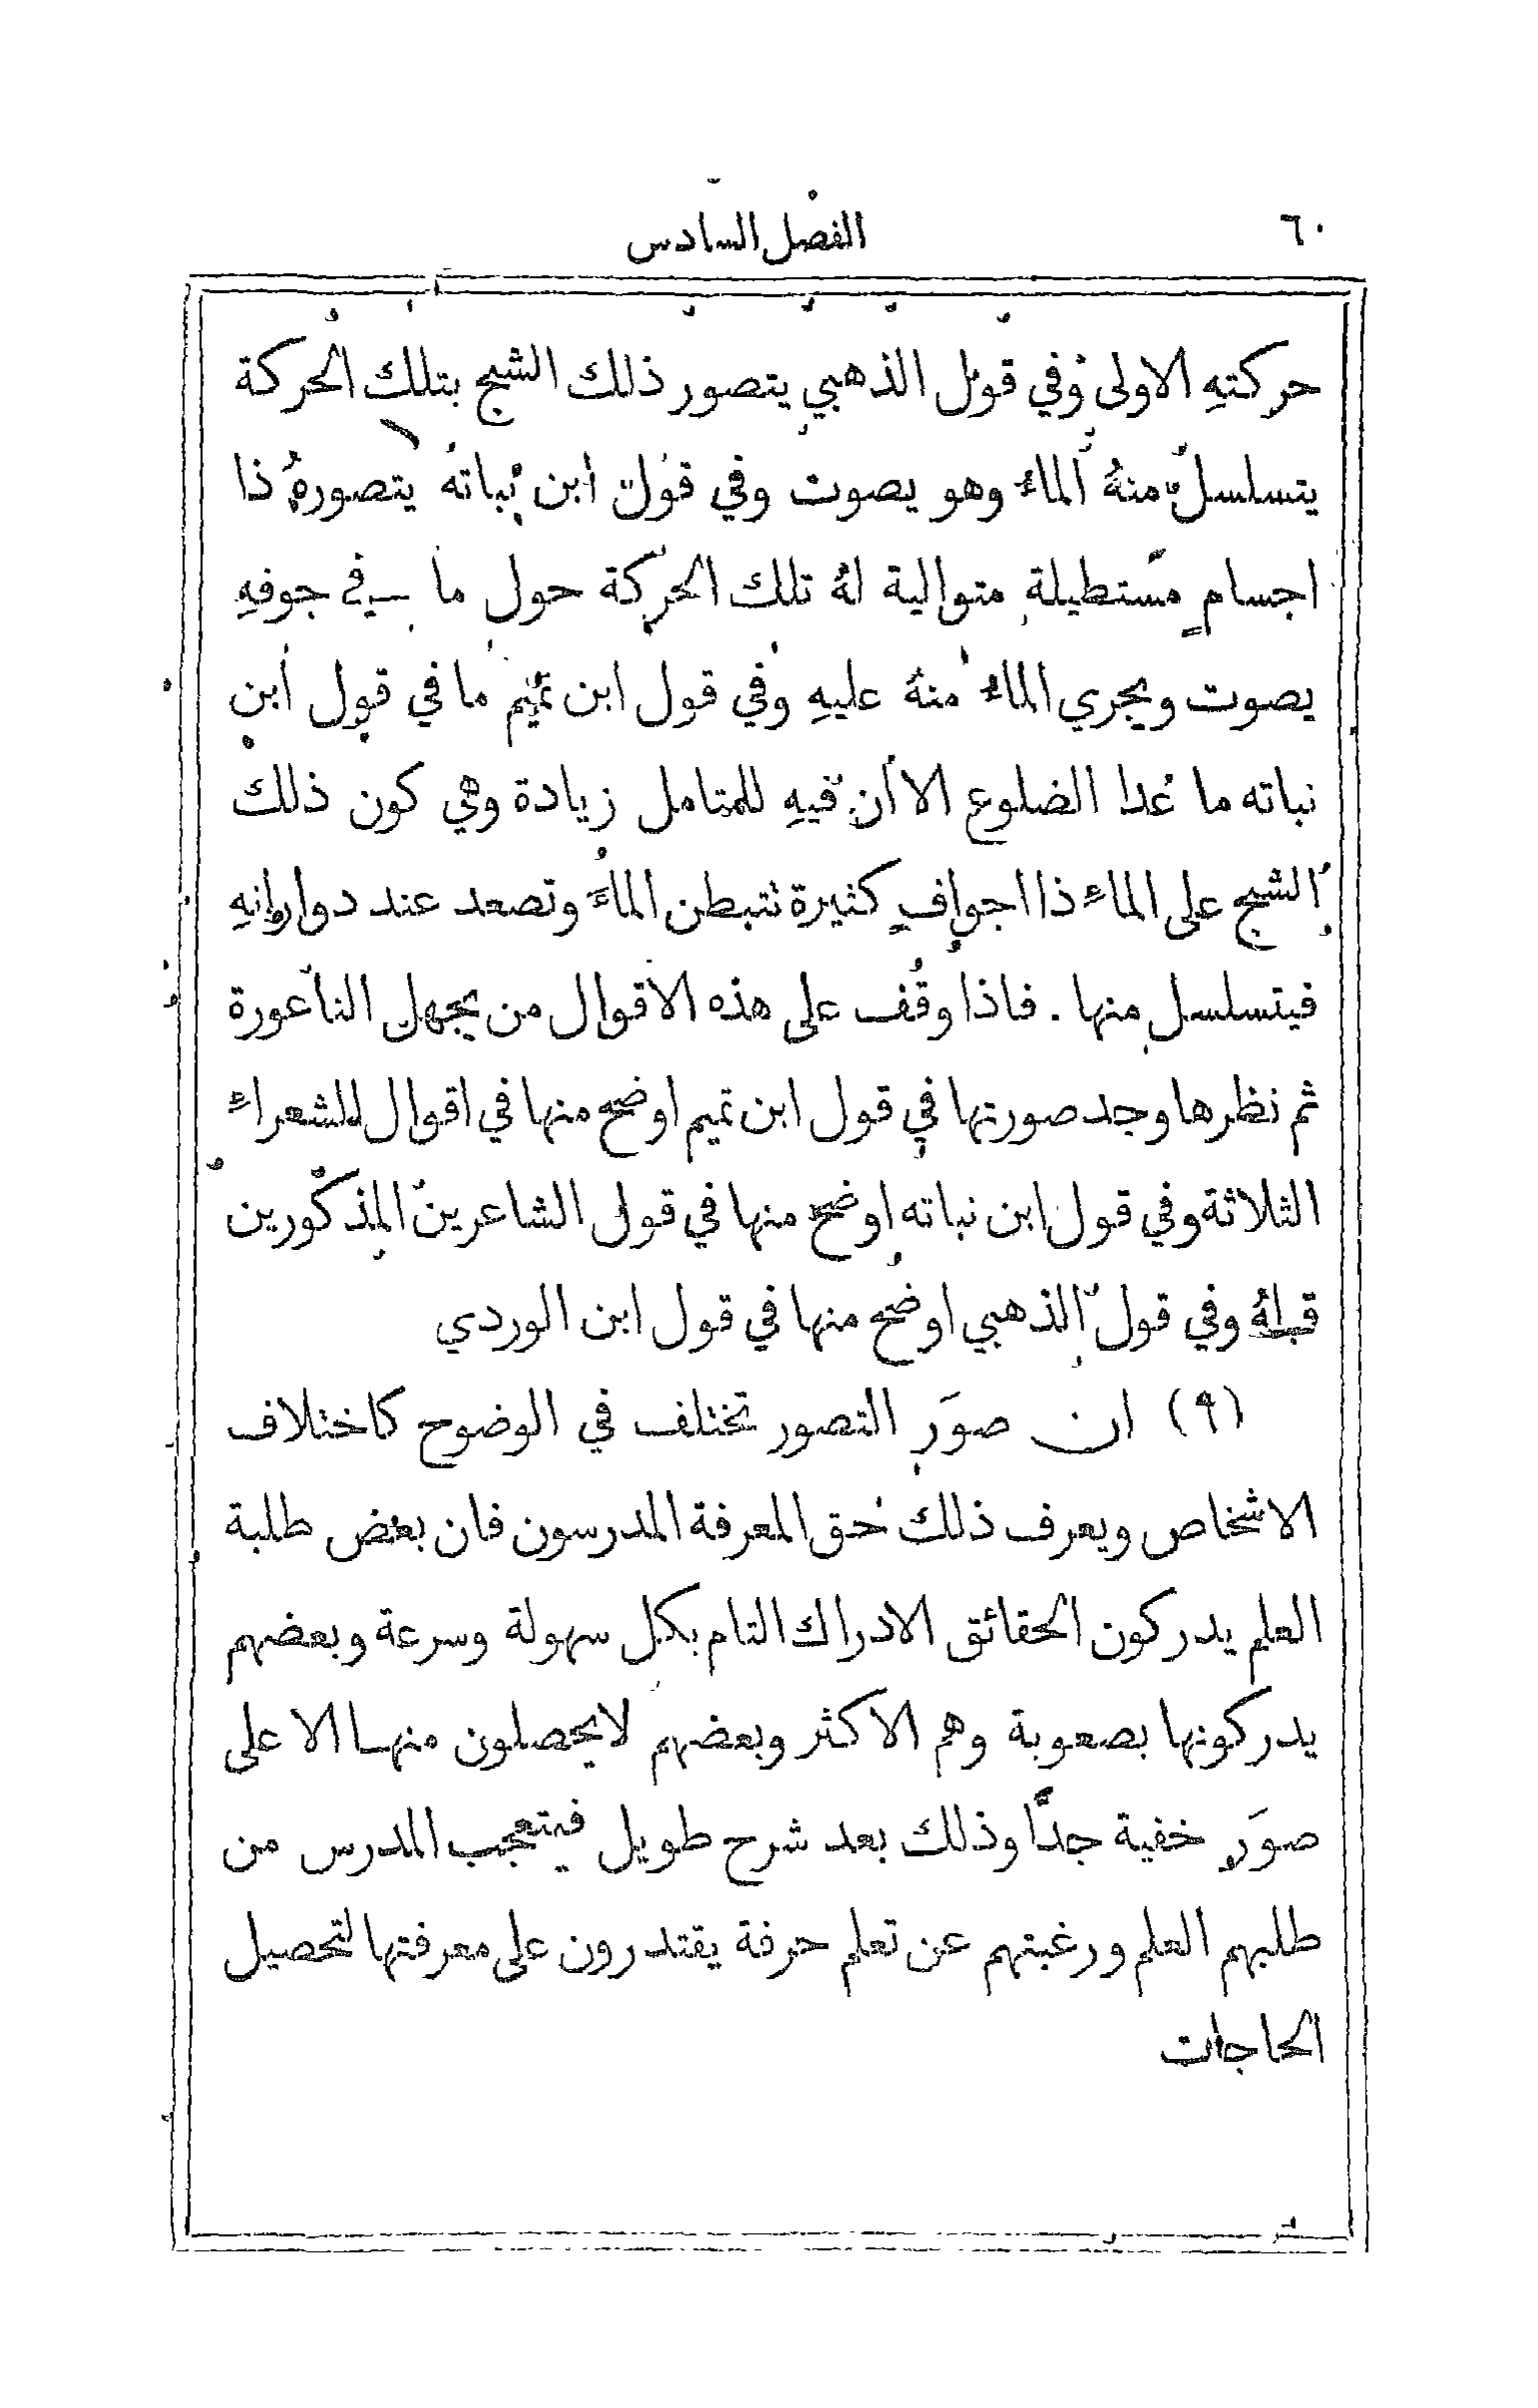 ٦٠
الفصل السادس
حركتهِ الاولى وفي قول الذهبي يتصور ذلك الشبح بتلك الحركة
يتسلسل منهُ الماءُ وهو يصوت وفي قول ابن نباته يتصورهُ ذا
اجسامٍ مستطيلة متوالية لهُ تلك الحركة حول ما في جوفهِ
يصوت ويجري الماءُ منهُ عليهِ وفي قول ابن تميم ما في قول ابن
نباته ما عدا الضلوع الا أن فيهِ للمتامل زيادة وهي كون ذلك
الشبح على الماء ذا اجوافٍ كثيرة تتبطن الماءَ وتصعد عند دورانهِ
فيتسلسل منها . فاذا وقف على هذه الاقوال من يجهل الناعورة
ثم نظرها وجد صورتها في قول ابن تميم اوضح منها في اقوال الشعراء
الثلاثة وفي قول ابن نباته اوضح منها في قول الشاعرين المذكورين
قبلهُ وفي قول الذهبي اوضح منها في قول ابن الوردي
(٩) ان صوَر التصور تختلف في الوضوح كاختلاف
الاشخاص ويعرف ذلك حق المعرفة المدرسون فان بعض طلبة
العلم يدركون الحقائق الادراك التام بكل سهولة وسرعة وبعضهم
يدركونها بصعوبة وهم الاكثر وبعضهم لا يحصلون منها الا على
صوَر خفية جدًّا وذلك بعد شرح طويل فيتعجب المدرس من
طلبهم العلم ورغبتهم عن تعلم حرفة يقتدرون على معرفتها لتحصيل
الحاجات